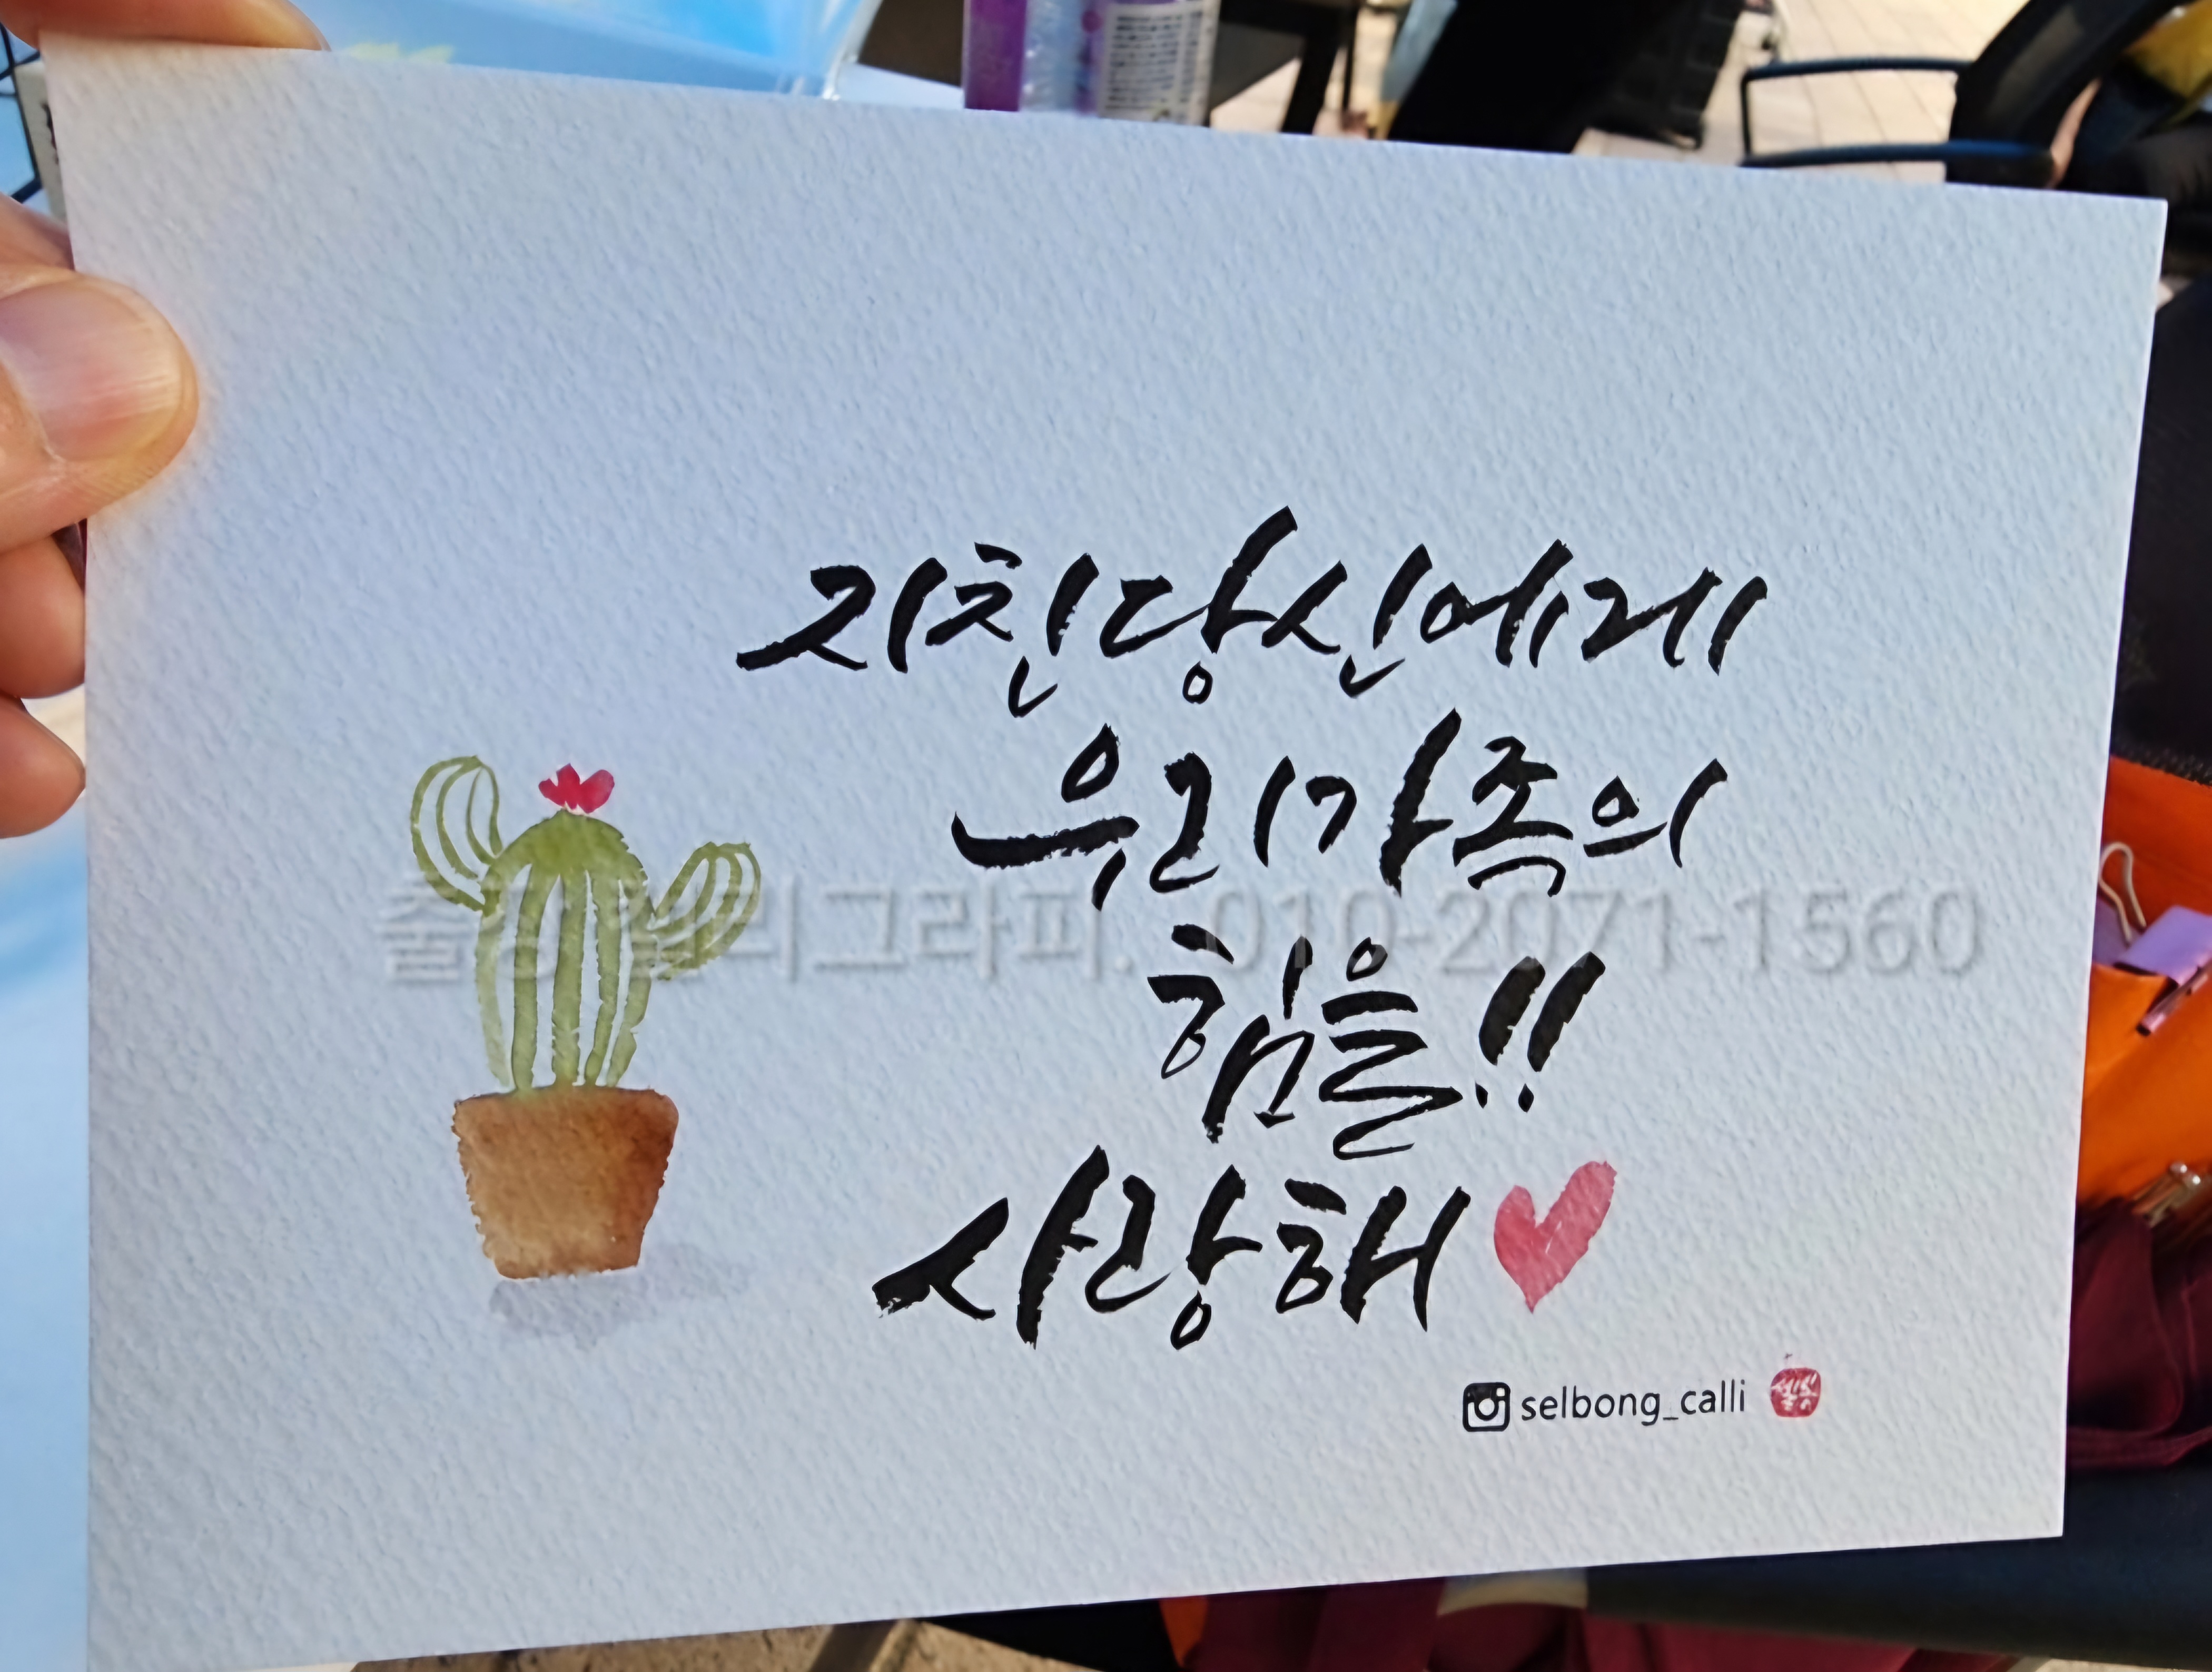 지친당신에게
우리가족의
출장캘리그라피. 010-2071-1560
힘을!!
사랑해
selbong_calli
셀봉